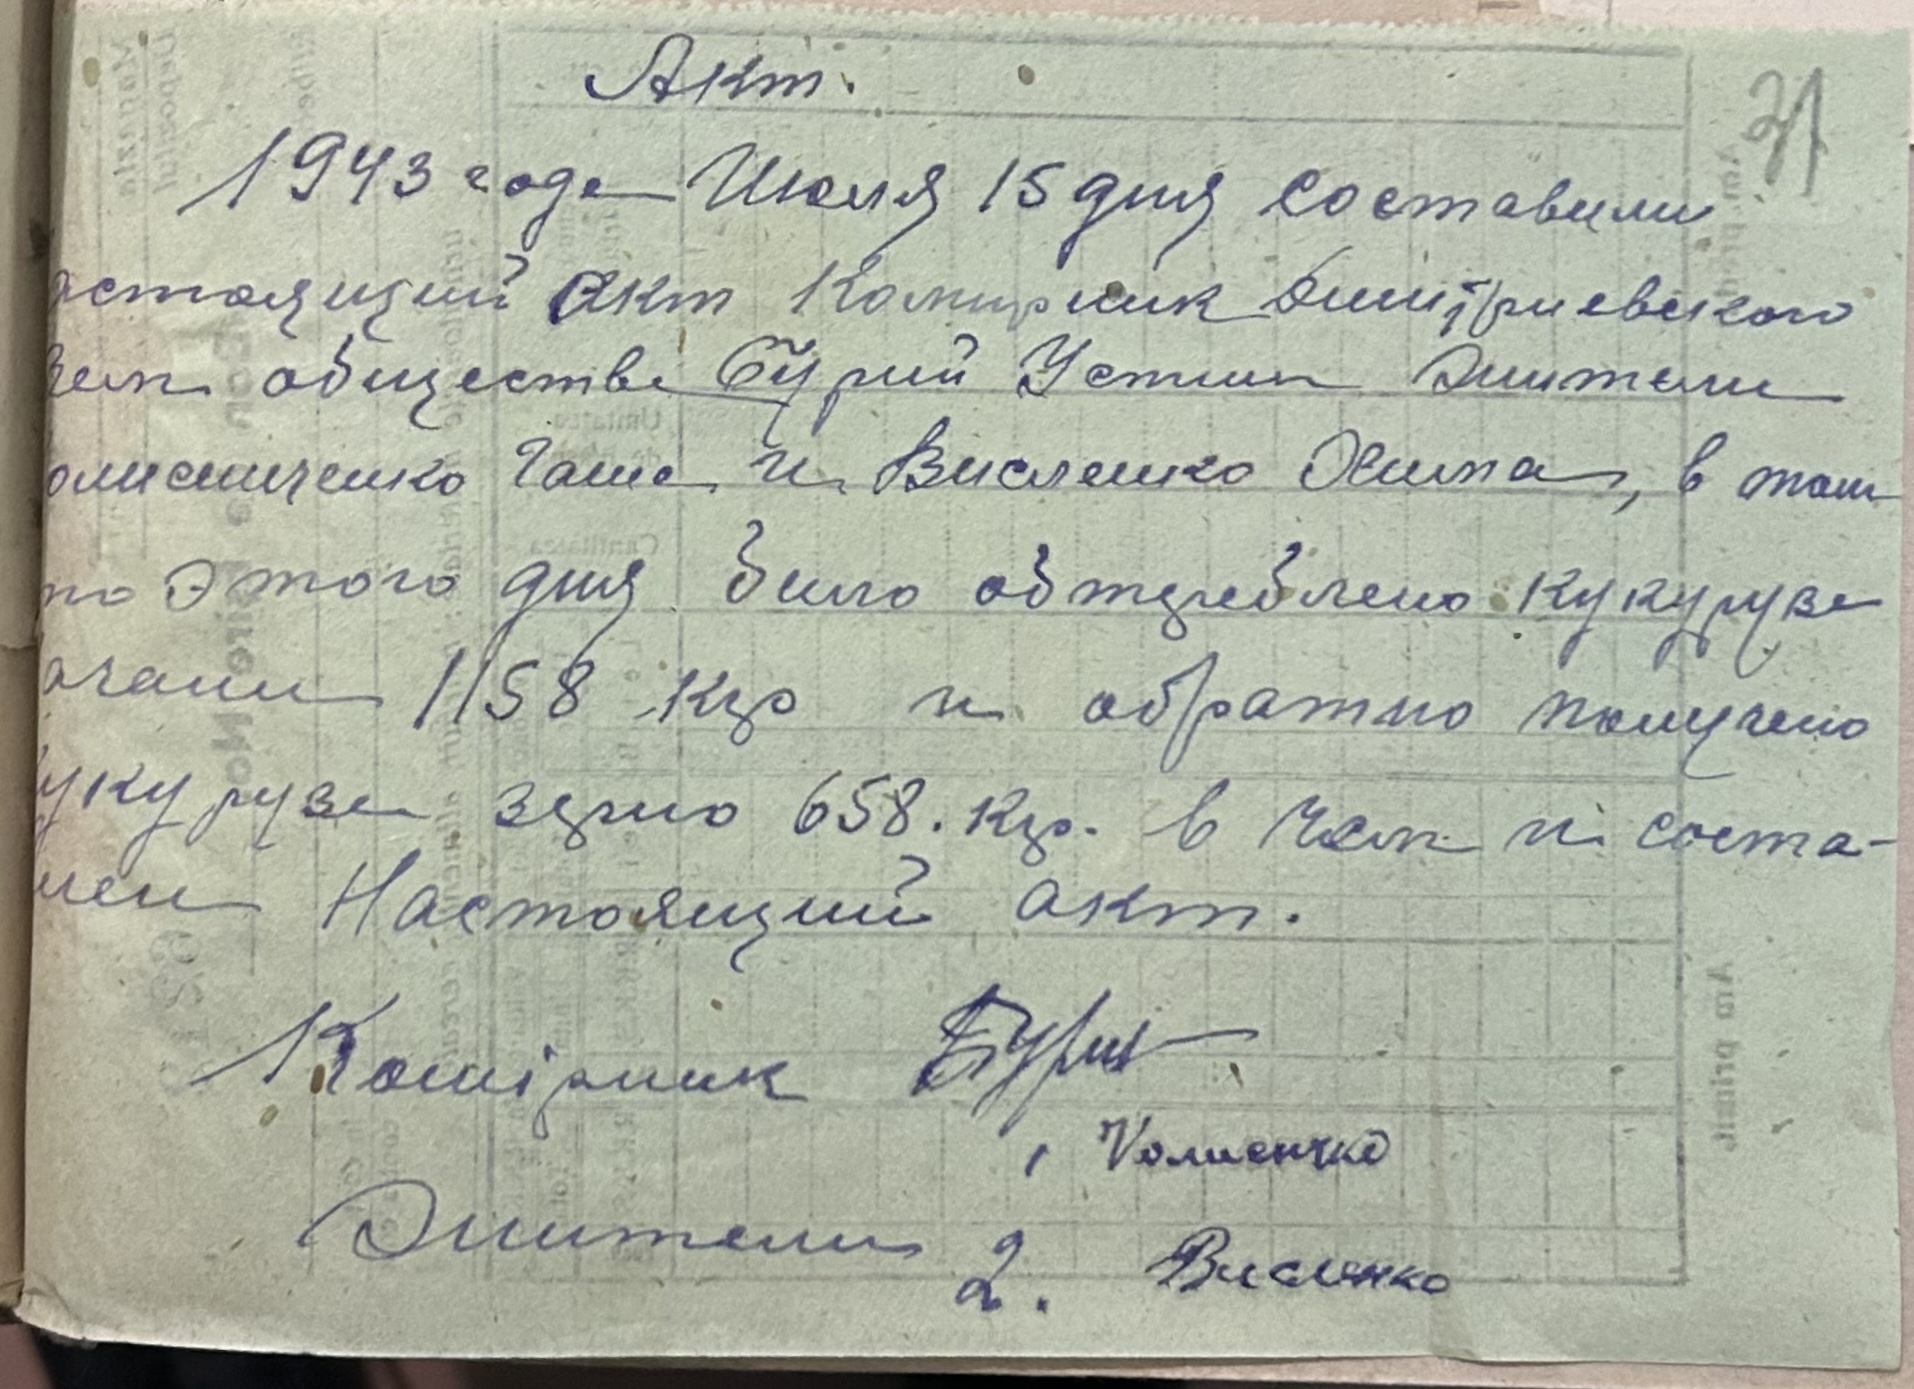 Акт.
31
1943 года Июля 15 дня составили
астоящий акт Комирник Дмитриевского
зем общества Бурий Устин Жители
олисниченко Гаша и Висленко Химпа, в том
то этого дня било обтереблено кукурузи
очами 1158 кгр и обратно получено
укурузи зерно 658. кгр. в чем и соста-
лен Настоящий акт.
Комірник Бурий
, Колисничко
Жители 2. Висленко